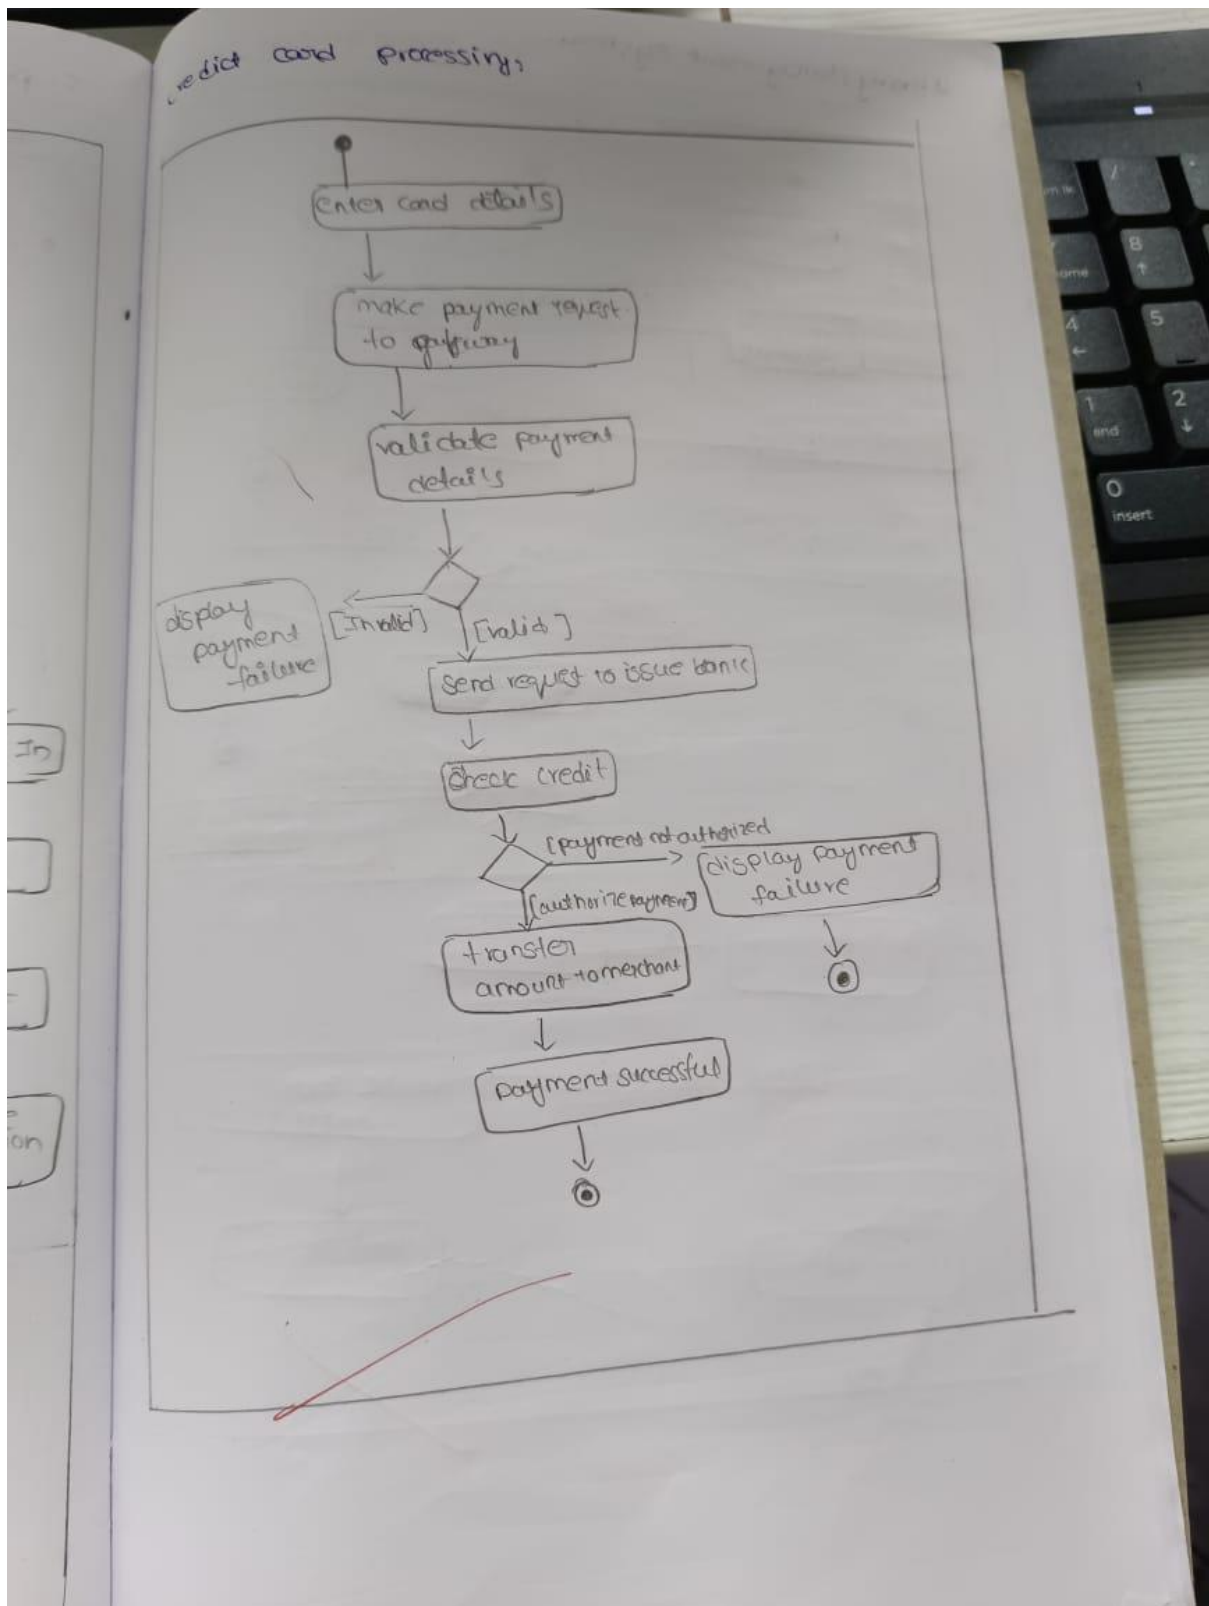 redict card processing,
enter card details
make payment request
to gateway
validate payment
details
display
payment
failure
[Invalid]
[valid]
send request to issue bank
check credit
[payment not authorized
display payment
failure
[authorize payment]
transfer
amount to merchant
payment successful
In
on
8
home
4
5
1
end
2
0
insert